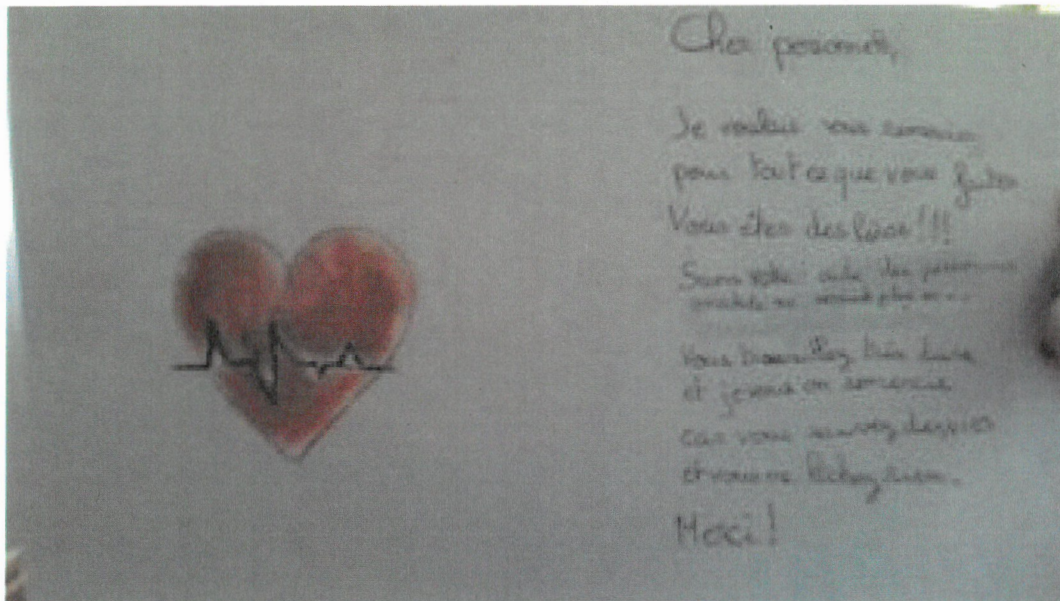 Cher personnel,
Je voulais vous remercier
pour tout ce que vous faites
Vous êtes des héros!!!
Sans votre aide des personnes
Vous travaillez très dure
et je vous en remercie
car vous sauvez des vies
et vous ne lâchez rien.
Merci!